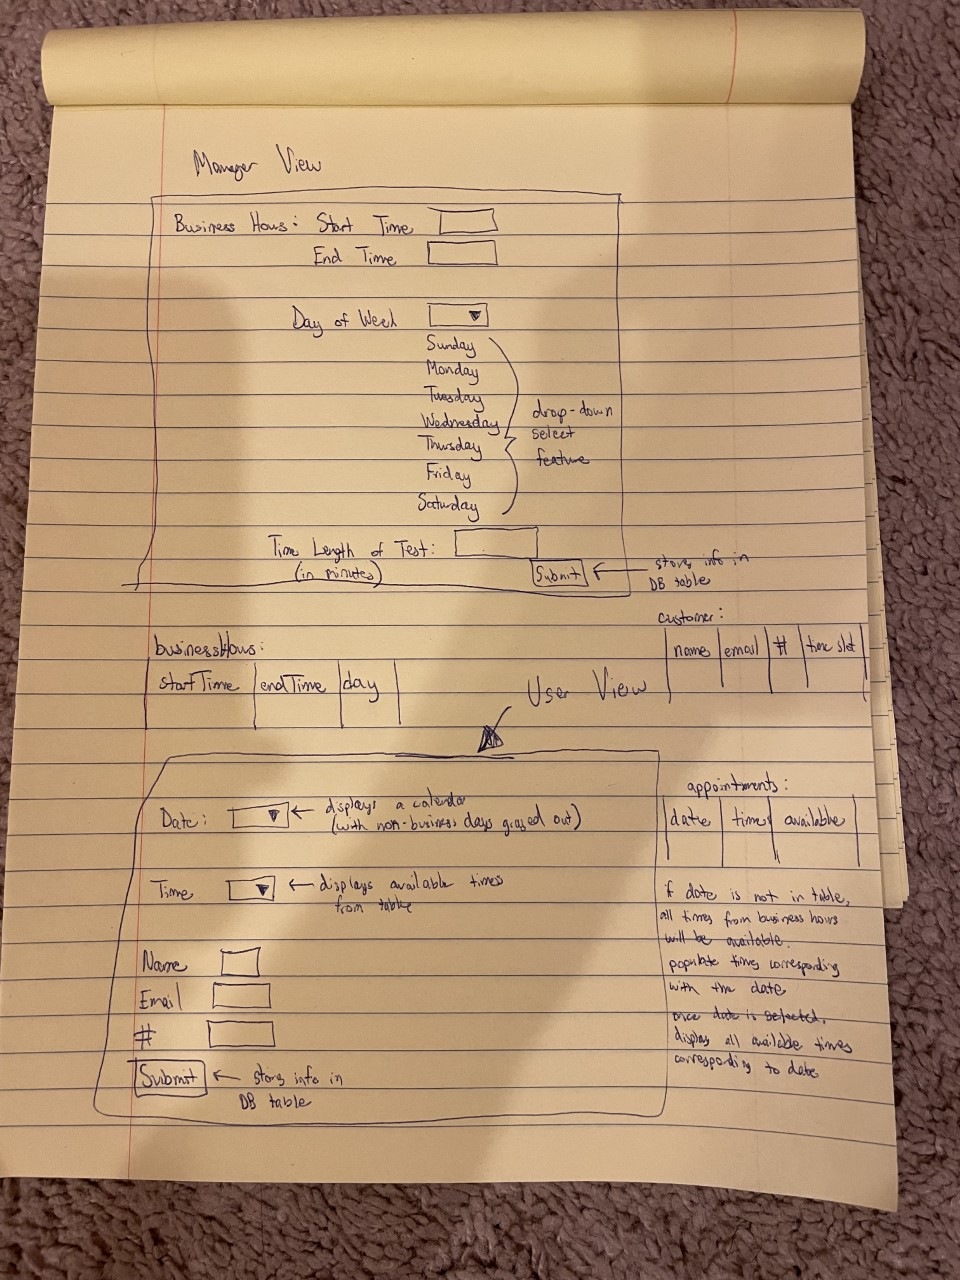 Manager View
Business Hours: Start Time
End Time
Day of Week
Sunday
Monday
Tuesday
Wednesday
Thursday
Friday
Saturday
drop-down
select
feature
Time Length of Test:
(in minutes)
Submit
store info in
DB table
businessHours:
startTime endTime day
customer:
name email # time slot
User View
Date:
displays a calendar
(with non-business days grayed out)
Time
displays available times
from table
Name
Email
#
Submit
store info in
DB table
appointments:
date time available
if date is not in table,
all times from business hours
will be available.
populate times corresponding
with the date
once date is selected,
display all available times
corresponding to date